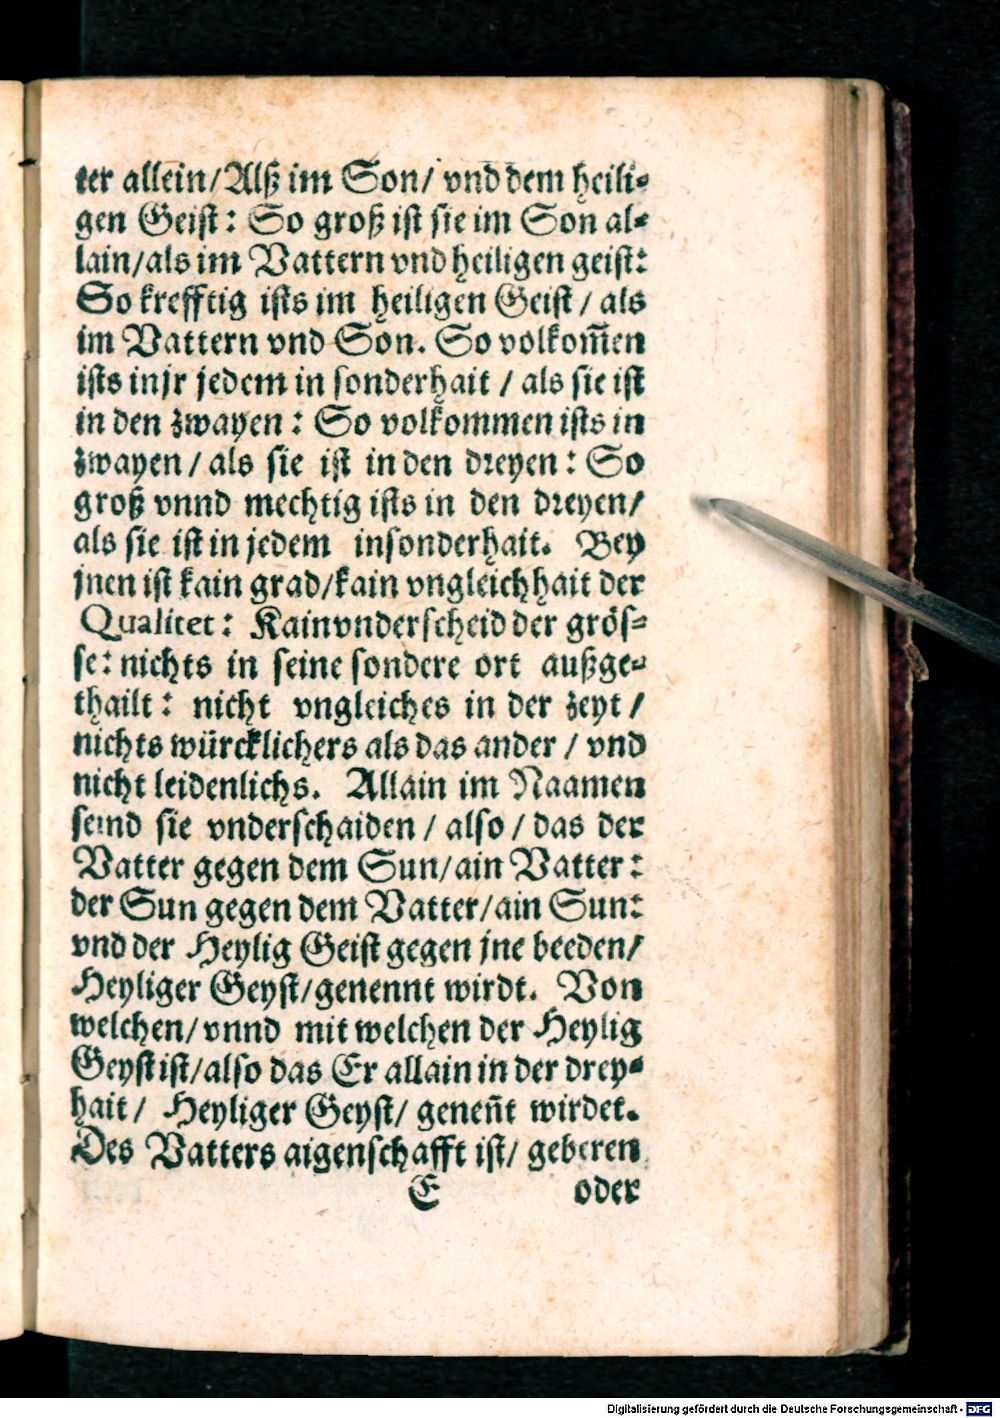 ter allein/Alß im Son/ vnd dem heili-
gen Geist: So groß ist sie im Son al-
lain/als im Vattern vnd heiligen geist:
So krefftig ists im heiligen Geist/ als
im Vattern vnd Son. So volkom̄en
ists in jr jedem in sonderhait / als sie ist
in den zwayen: So volkommen ists in
zwayen/ als sie ist in den dreyen: So
groß vnnd mechtig ists in den dreyen/
als sie ist in jedem insonderhait. Bey
jnen ist kain grad/kain vngleichhait der
Qualitet: Kain vnderscheid der grös-
se: nichts in seine sondere ort außge-
thailt: nicht vngleiches in der zeyt/
nichts würcklichers als das ander / vnd
nicht leidenlichs. Allain im Naamen
seind sie vnderschaiden / also / das der
Vatter gegen dem Sun/ain Vatter:
der Sun gegen dem Vatter/ain Sun:
vnd der Heylig Geist gegen jne beeden/
Heyliger Geyst/genennt wirdt. Von
welchen/ vnnd mit welchen der Heylig
Geyst ist/also das Er allain in der drey-
hait/ Heyliger Geyst/ geneñt wirdet.
Des Vatters aigenschafft ist/ geberen
E oder
Digitalisierung gefördert durch die Deutsche Forschungsgemeinschaft - DFG